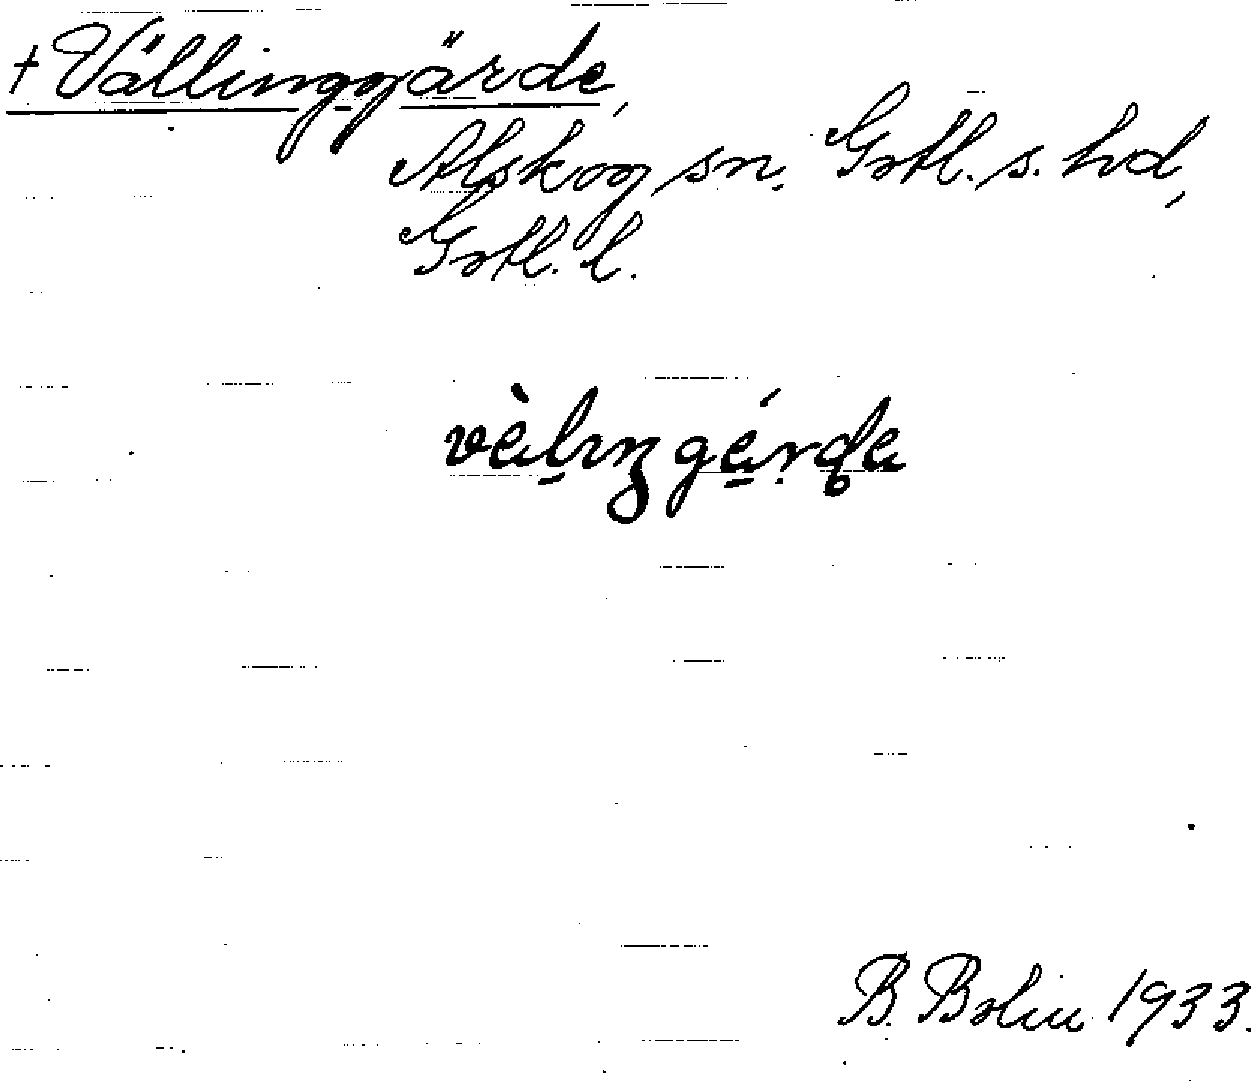 † Vällinggärde,
Alskog sn. Gotl. s. hd,
Gotl. l.
vàlıŋgárde
B. Bolin 1933.